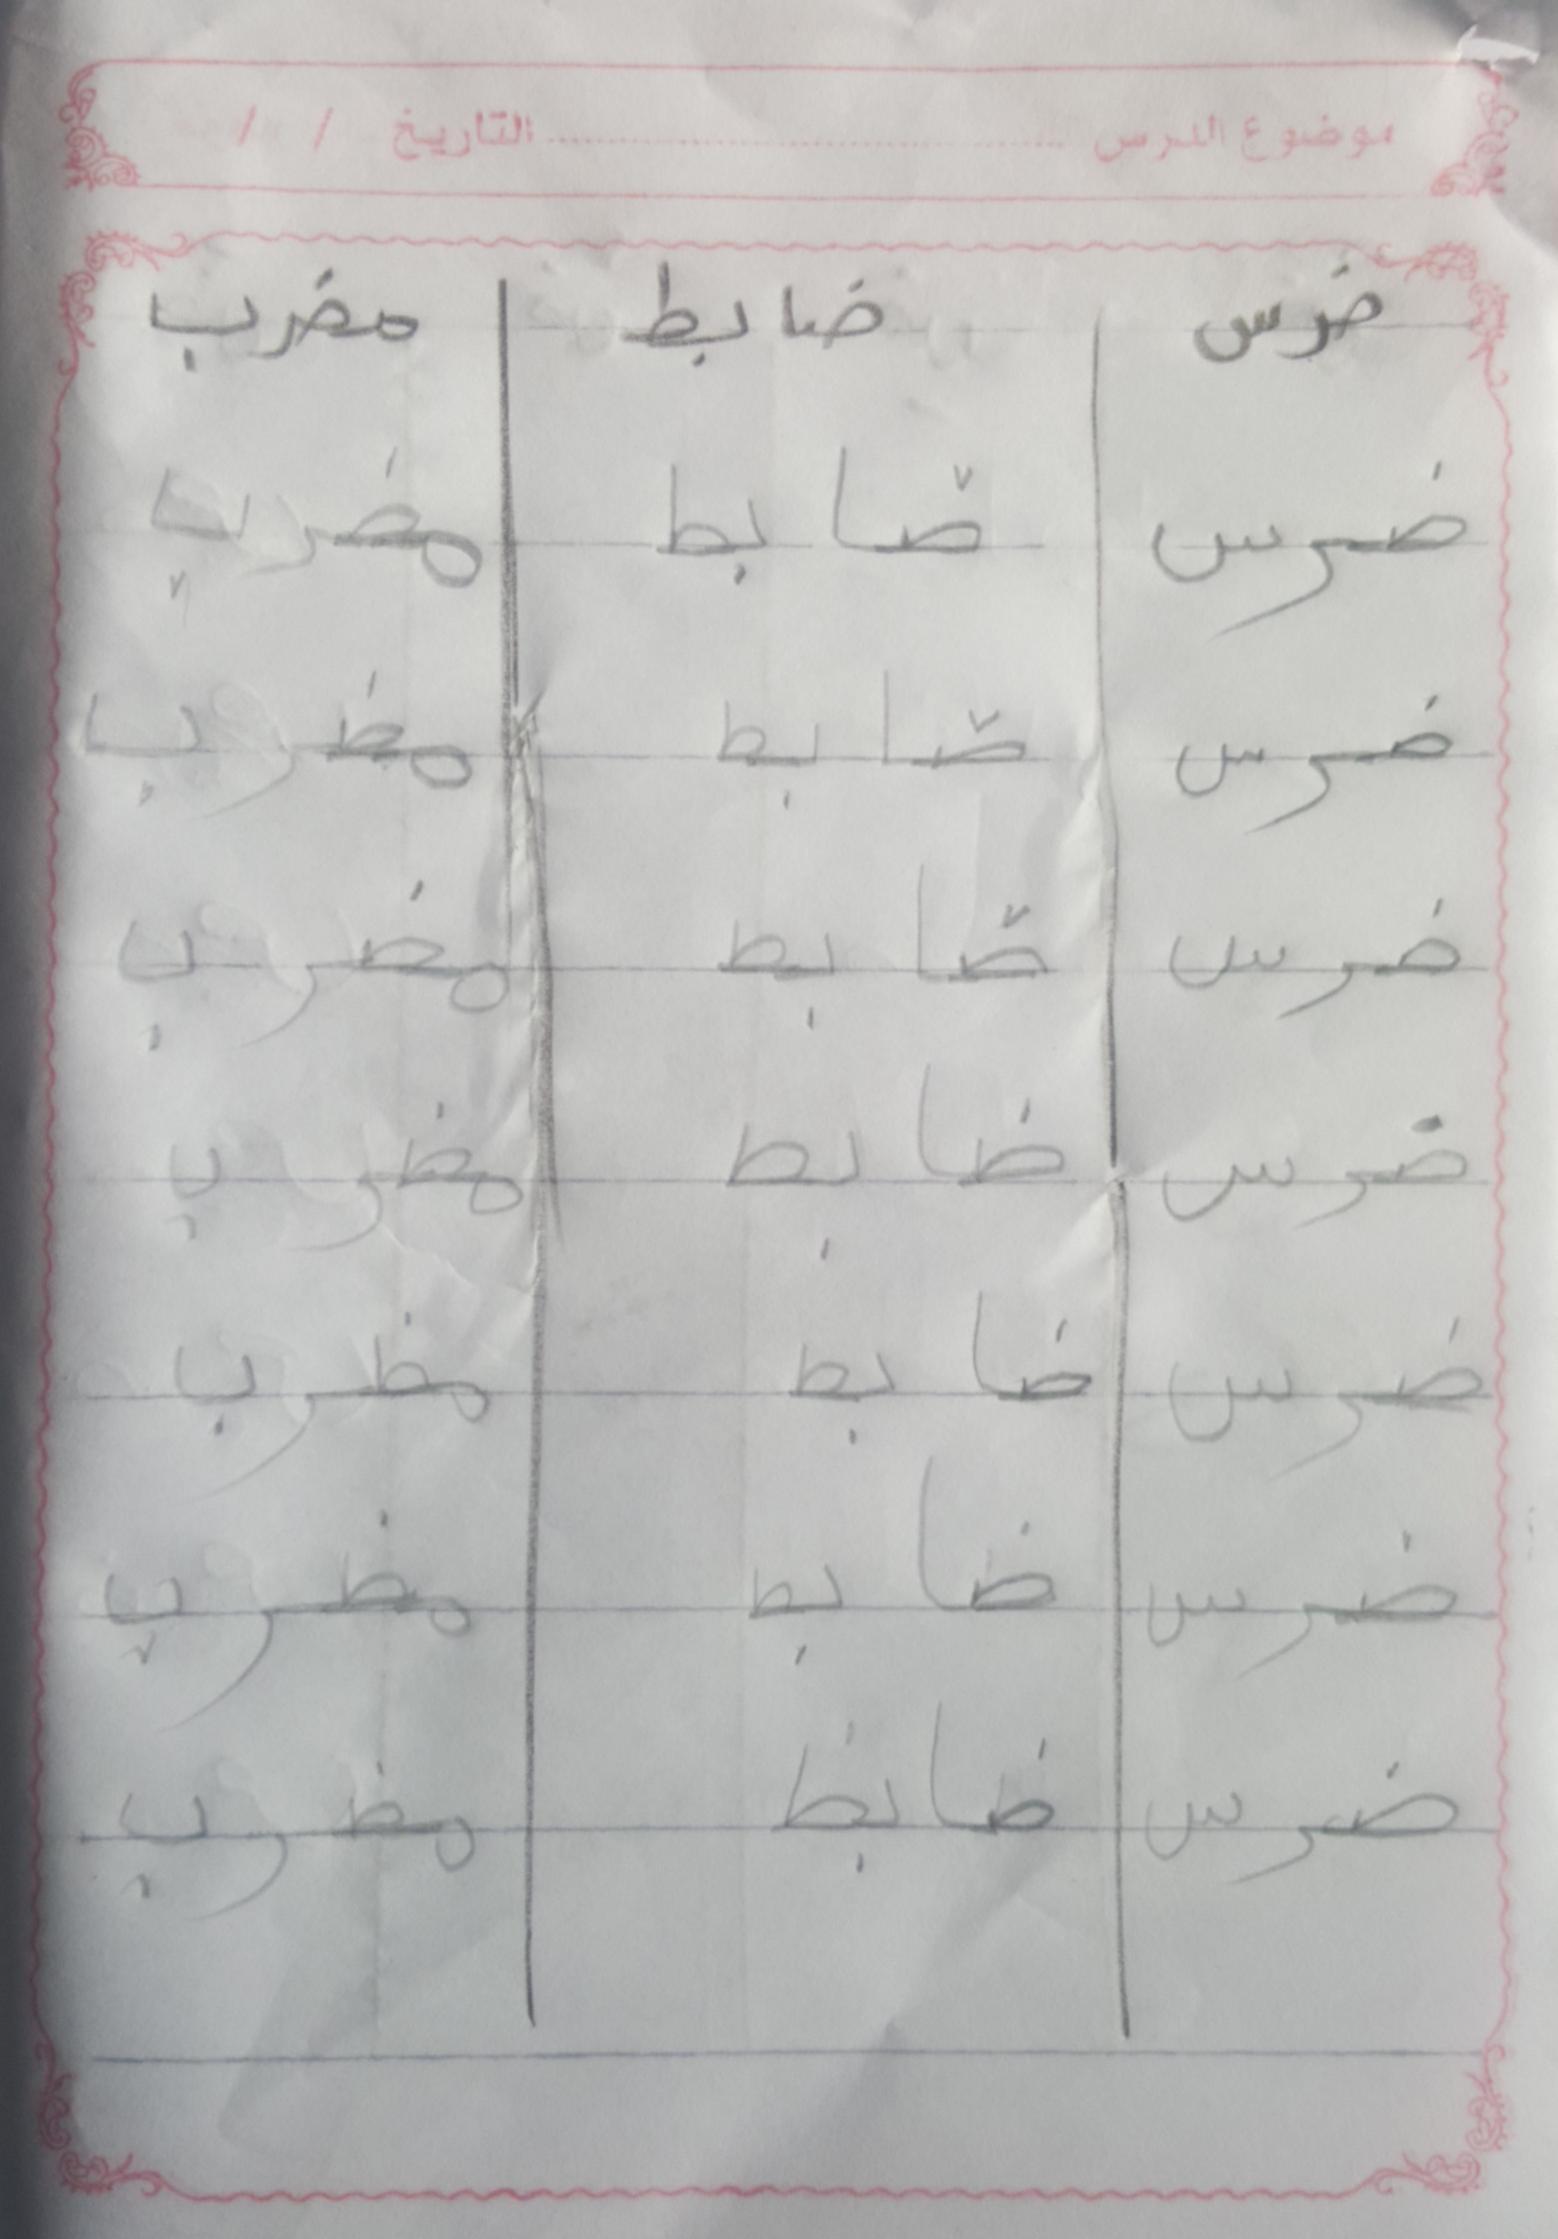 موضوع الدرس ........................ التاريخ / /
ضرس ضابط مضرب
ضرس ضابط مضرب
ضرس ضابط مضرب
ضرس ضابط مضرب
ضرس ضابط مضرب
ضرس ضابط مضرب
ضرس ضابط مضرب
ضرس ضابظ مضرب